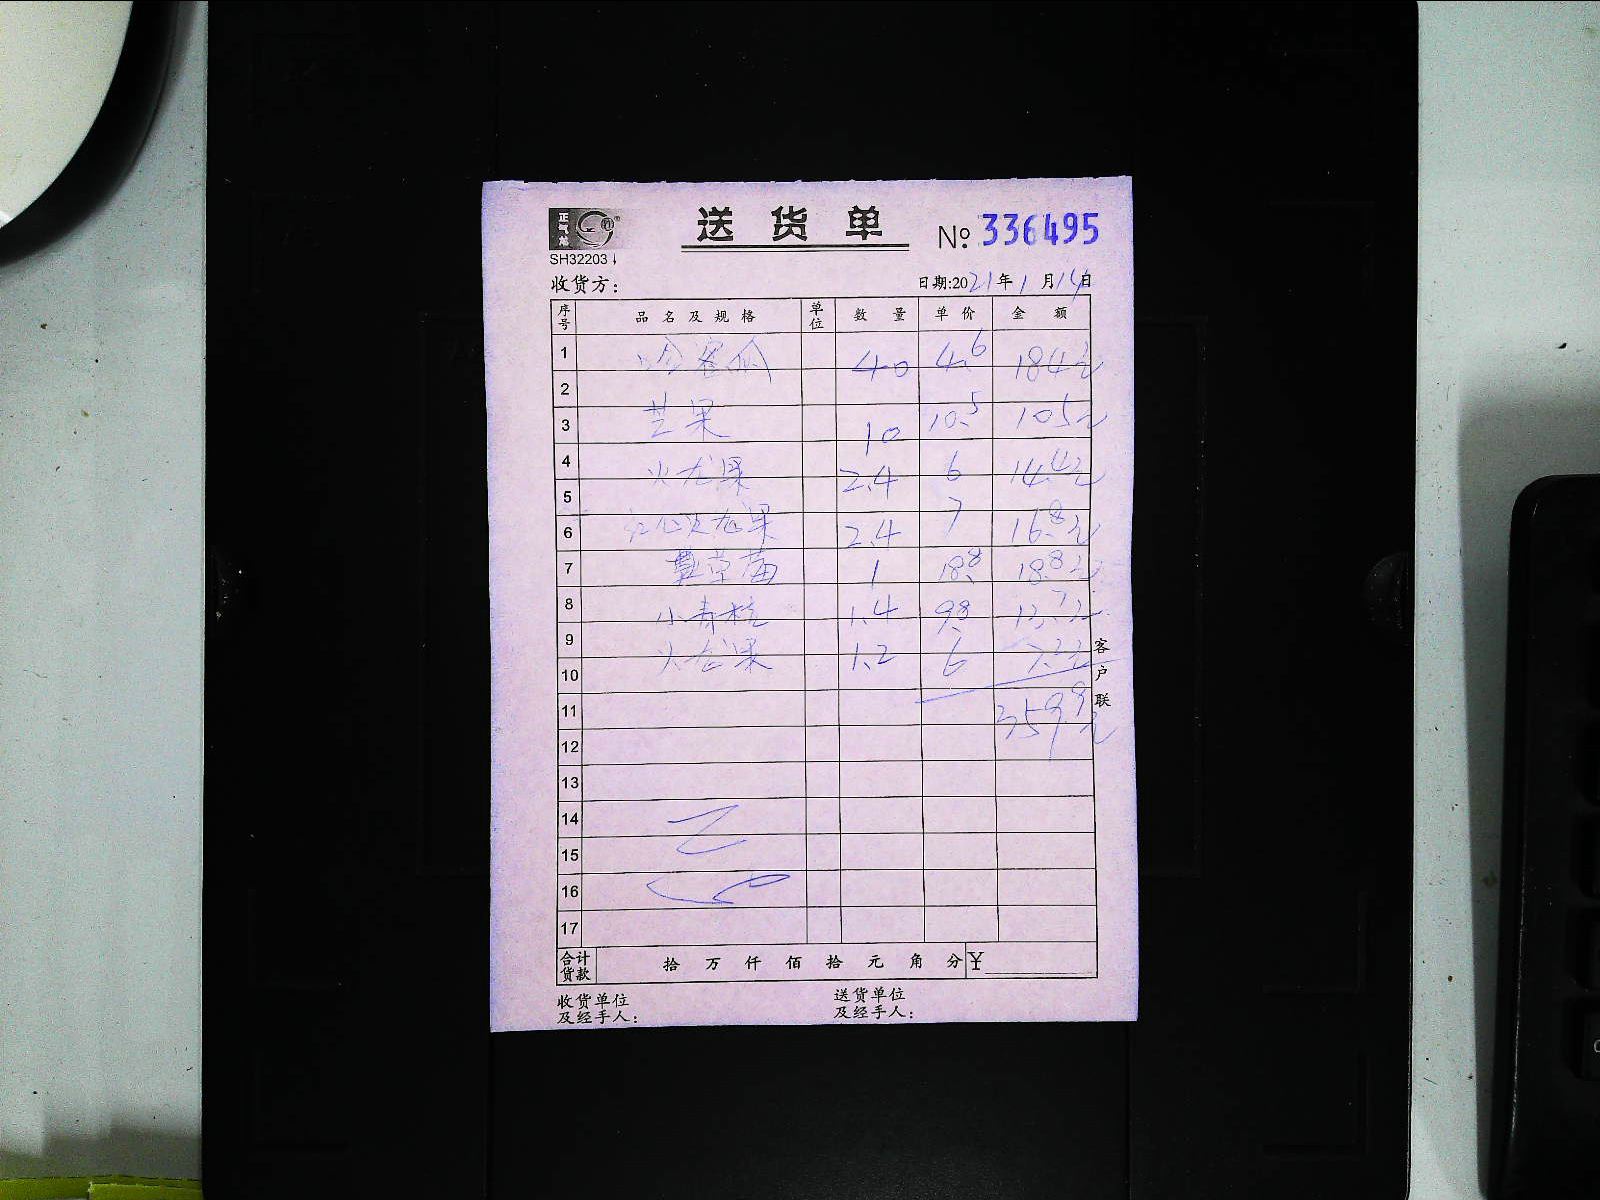 正
送 货 单
№ 336495
SH32203
收货方: 日期:2021年1月14日
序号 品名及规格 单位 数量 单价 金额
1 哈密瓜 40 4.6 184元
2
3 芒果 10 10.5 105元
4 火龙果 2.4 6 14.4元
5
6 红心火龙果 2.4 7 16.8元
7 草莓 1 18.8 18.8元
8 小青桔 1.4 9.8 13.7元
9 火龙果 1.2 6 7.2元
10
11 359.9元
12
13
14
15
16
17
客户联
合计货款 拾 万 仟 佰 拾 元 角 分 ¥
收货单位及经手人: 送货单位及经手人: